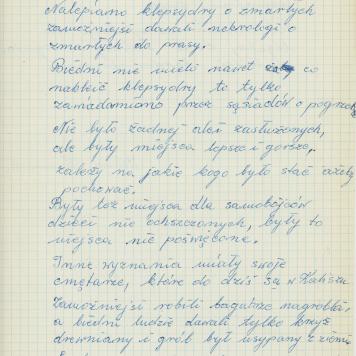 Nalepiano klepsydry o zmarłych
zamożniejsi dawali nekrologi o
zmarłych do prasy.
Biedni nie mieli nawet co
nakleić klepsydry to tylko
zawiadamiano przez sąsiadów o pogrzeb
Nie było żadnej alei zasłużonych,
ale były miejsca lepsze i gorsze,
zależy na jakie kogo było stać ażeby
pochować.
Były też miejsca dla samobójców
dzieci nie ochszczonych, były to
miejsca nie poświęcone.
Inne wyznania miały swoje
cmętarze, które do dziś są w Kaliszu
Zamożniejsi robili bogatsze nagrobki,
a biedni ludzie dawali tylko krzyż
drewniany i grób był usypany z ziemi